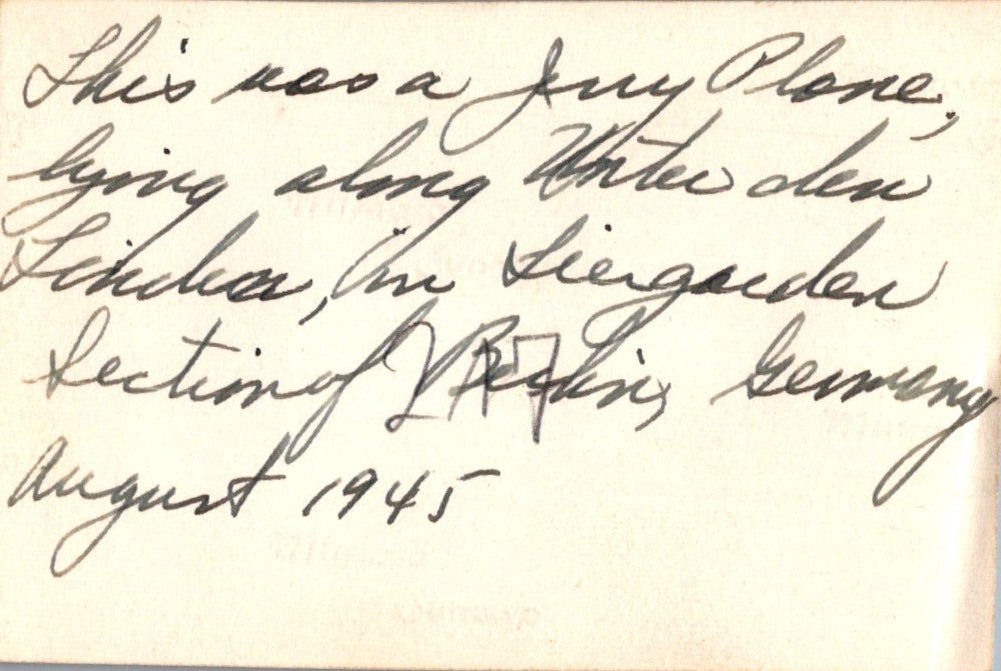 This was a Jerry Plane,
lying along Unter den
Linden, in Tiergarden
Section of Berlin, Germany
August 1945